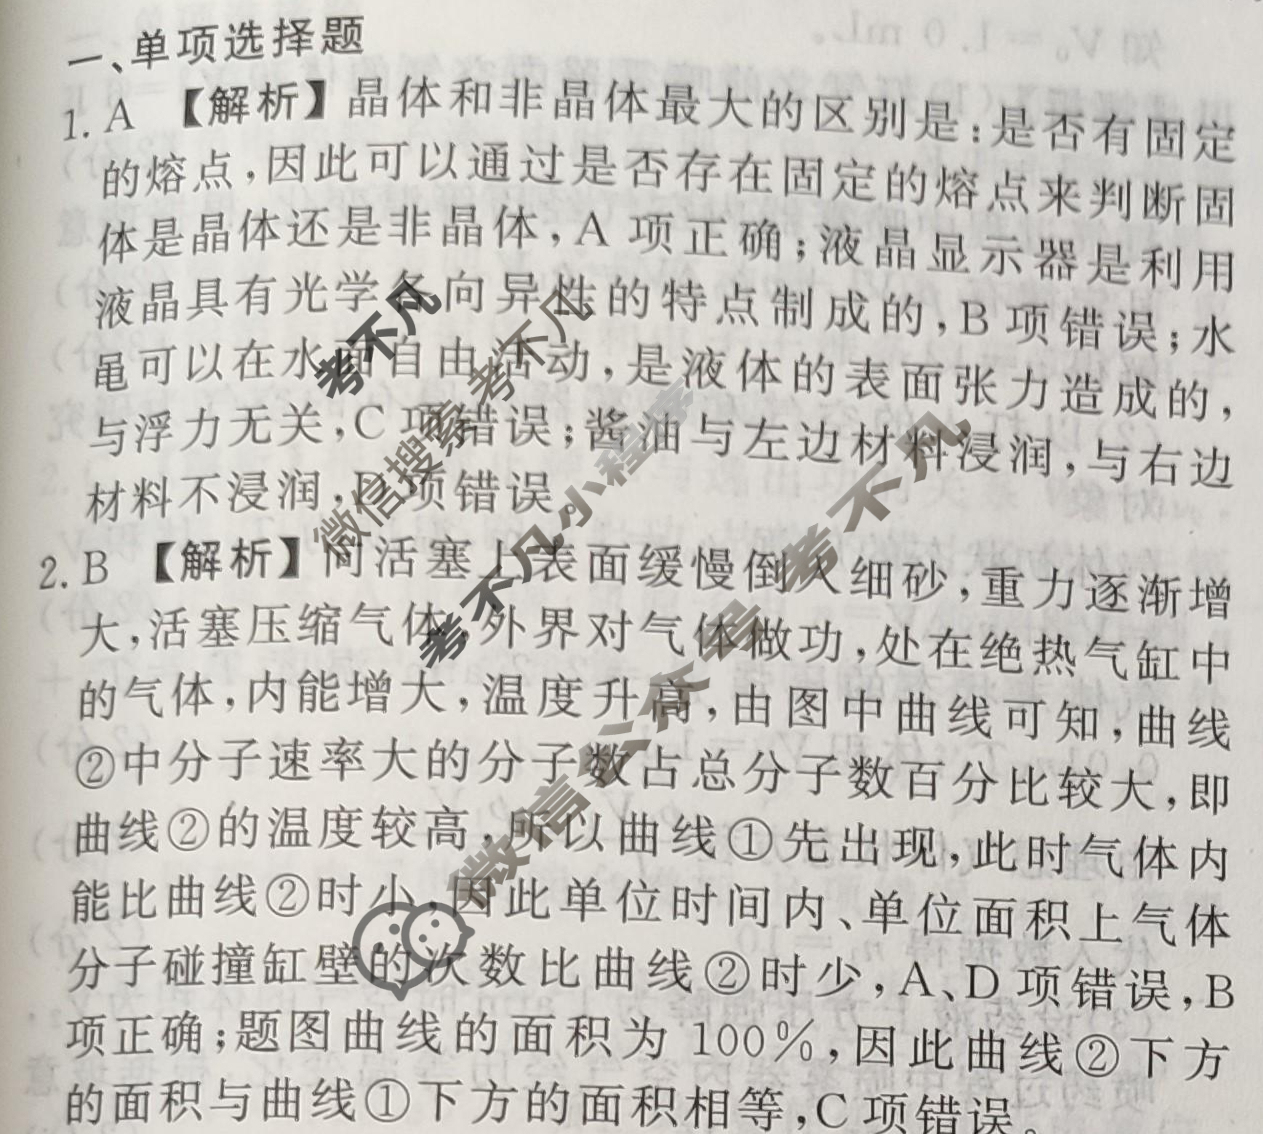 一、单项选择题
1. A 【解析】晶体和非晶体最大的区别是：是否有固定
的熔点，因此可以通过是否存在固定的熔点来判断固
体是晶体还是非晶体，A 项正确；液晶显示器是利用
液晶具有光学各向异性的特点制成的，B 项错误；水
黾可以在水面自由活动，是液体的表面张力造成的，
与浮力无关，C 项错误；酱油与左边材料浸润，与右边
材料不浸润，D 项错误。
2. B 【解析】向活塞上表面缓慢倒入细砂，重力逐渐增
大，活塞压缩气体，外界对气体做功，处在绝热气缸中
的气体，内能增大，温度升高，由图中曲线可知，曲线
②中分子速率大的分子数占总分子数百分比较大，即
曲线②的温度较高，所以曲线①先出现，此时气体内
能比曲线②时小，因此单位时间内、单位面积上气体
分子碰撞缸壁的次数比曲线②时少，A、D 项错误，B
项正确；题图曲线的面积为 100%，因此曲线②下方
的面积与曲线①下方的面积相等，C 项错误。
考不凡
微信搜索 考不凡
考不凡小程序
微信公众号 考不凡